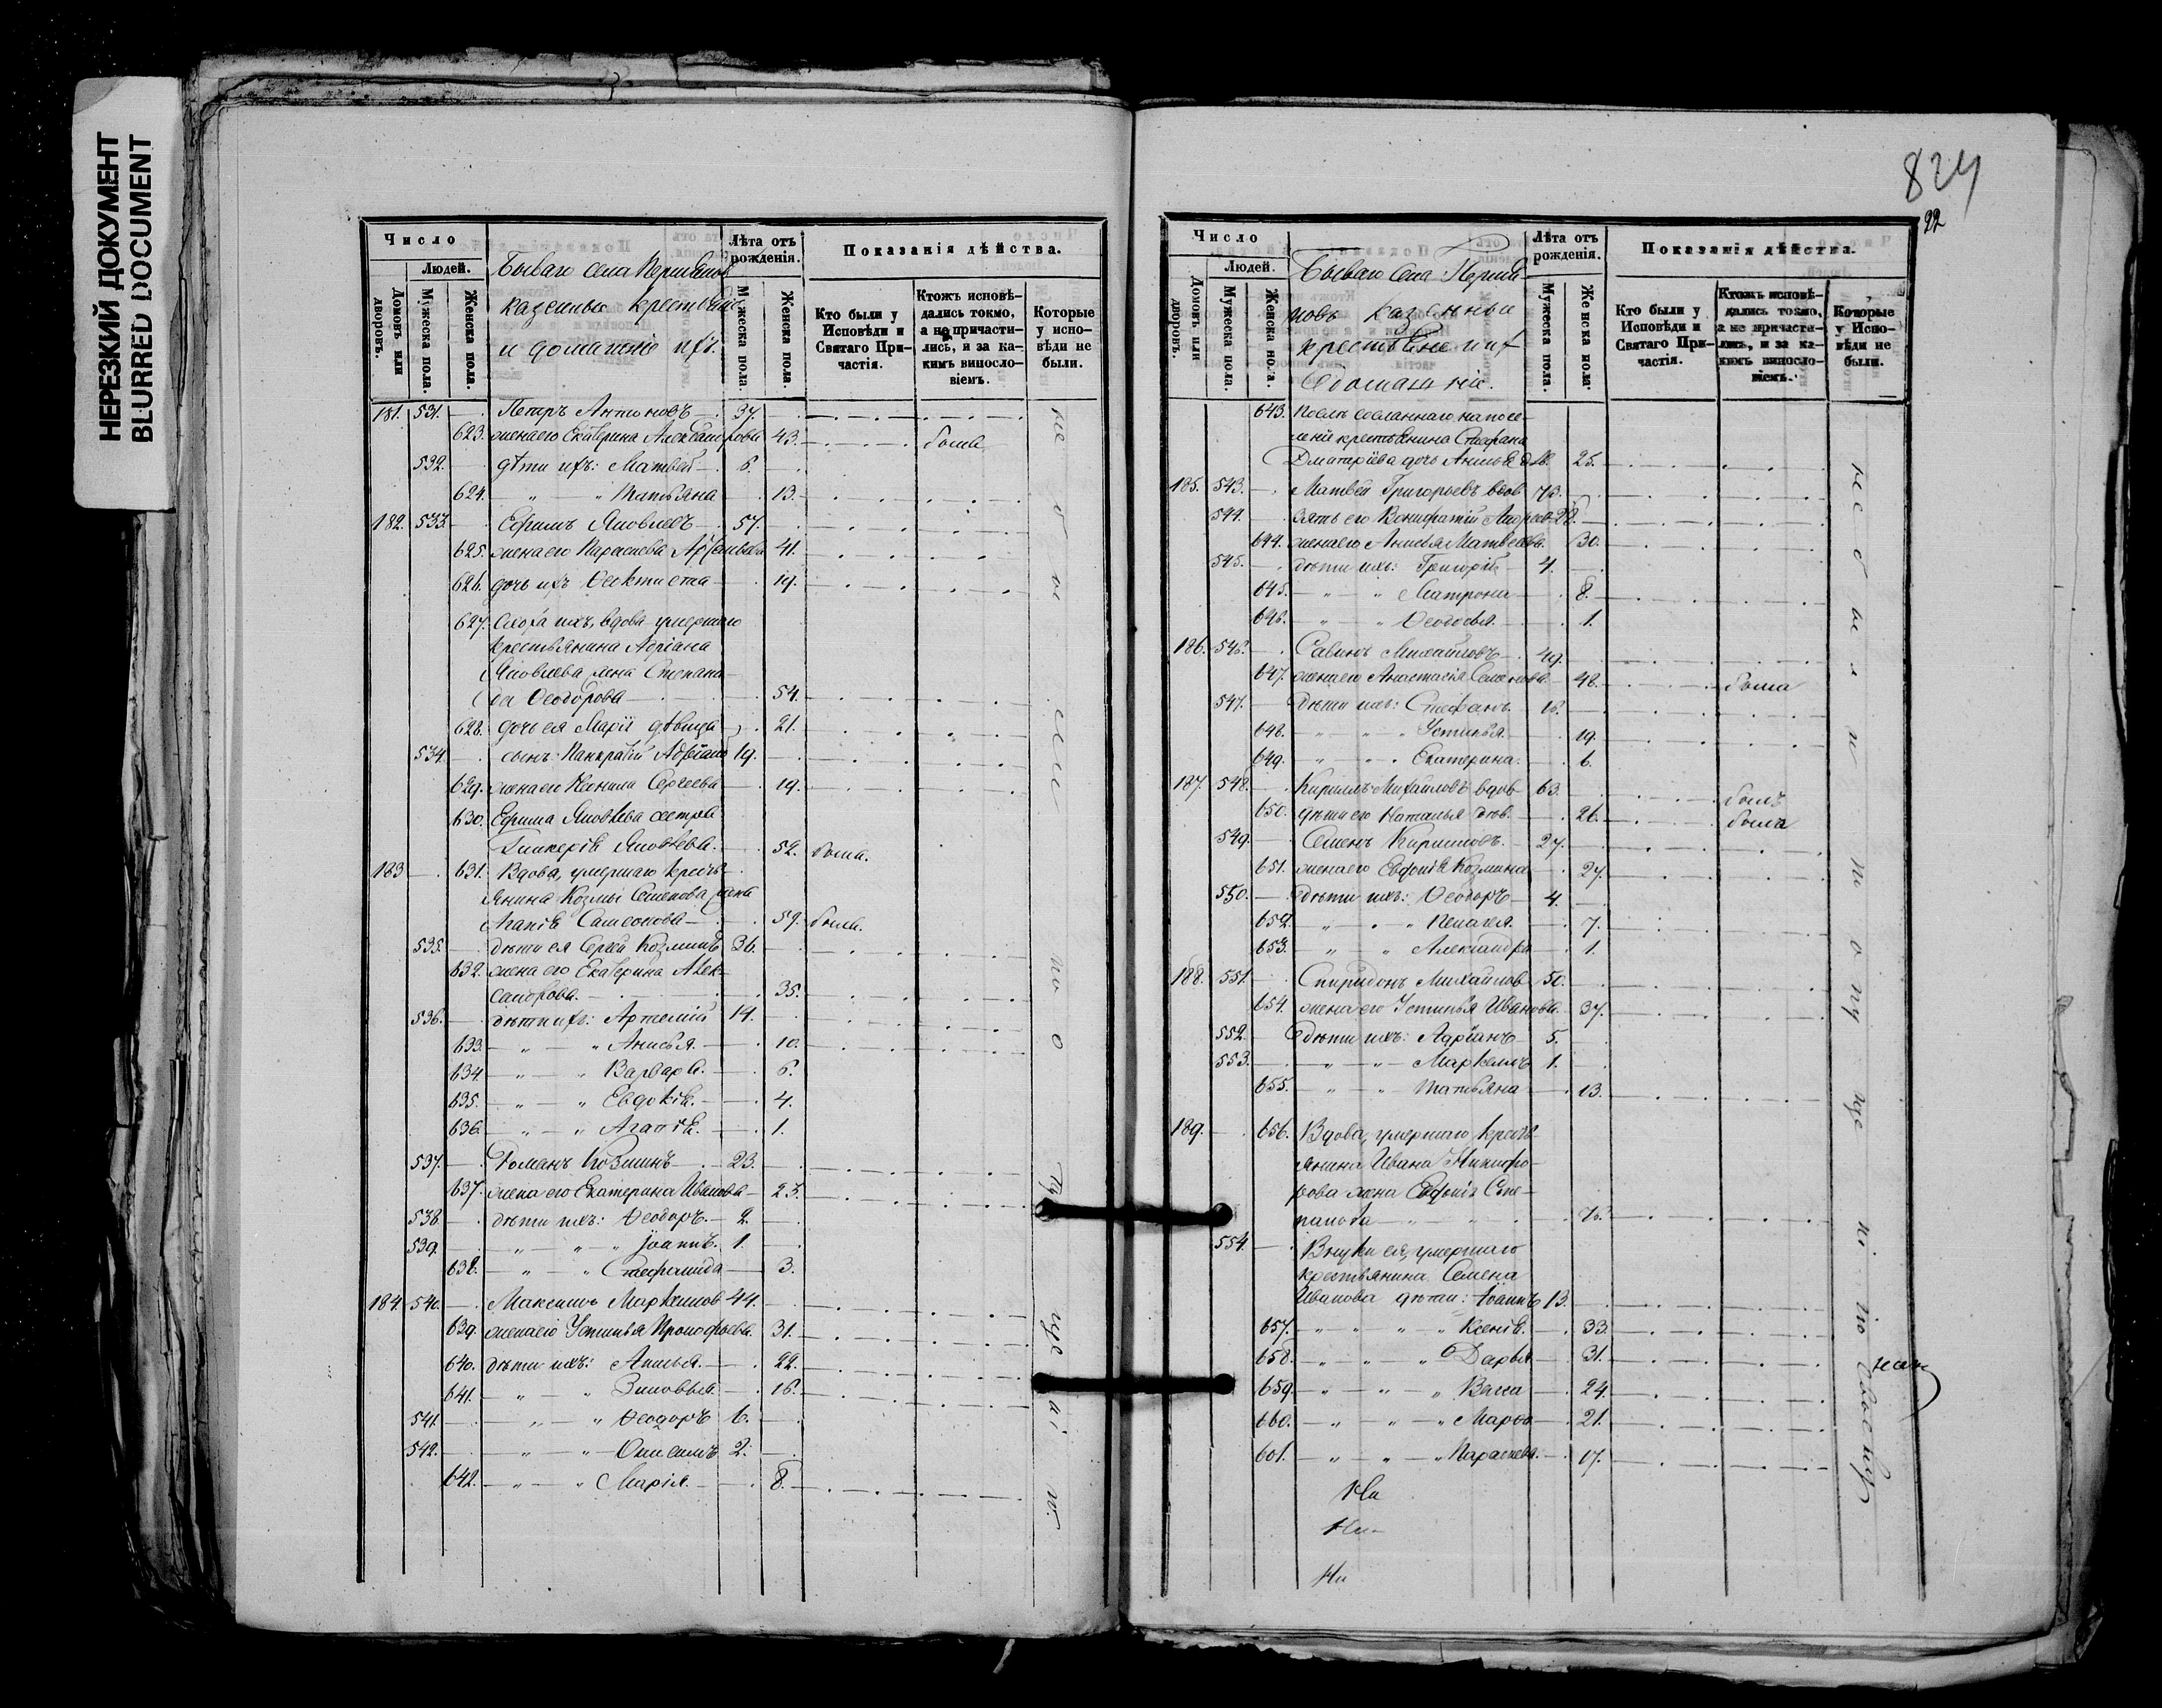 НЕРЕЗКИЙ ДОКУМЕНТ
BLURRED DOCUMENT
Число
Людей.
Домовъ или дворовъ.
Мужеска пола.
Женска пола.
казенные крестьяне
и домашніе ихъ.
Лѣта отъ рожденія.
Мужеска пола.
Женска пола.
Показанія дѣйства.
Кто были у Исповѣди и Святаго Причастія.
Ктожъ исповѣдались токмо, а не причастились, и за какимъ винословіемъ.
Которые у исповѣди не были.
181. 531. Петръ Антоновъ 37.
623. жена его Екатерина Александрова 43. была
532. дѣти ихъ: Матвей 6.
624. " " Татьяна 13.
182. 533. Ефимъ Яковлевъ 57.
625. жена его Параскева 41.
626. дочь ихъ Феоктиста 19.
627. Сноха ихъ, вдова умершаго
крестьянина Адріана
Яковлева жена Степани-
да Феодорова 54.
628. дочь ея Марія дѣвица 21.
534. сынъ: Панкратій Адріановъ 19.
629. жена его Ксенія Сергеева 19.
630. Ефима Яковлева сестра
Гликерія Яковлева. 52. была.
183 631. Вдова, умершаго кресть-
янина Козмы Семенова жена
Агапія Самсонова 59. была.
535. дѣти ея Сергей Козминъ 36.
632. жена его Екатерина Алек-
сандрова. 35.
536. дѣти ихъ: Артемій 14.
633. " " Анисья. 10.
634. " " Варвара. 6.
635. " " Евдокія. 4.
636. " " Агапія. 1.
537. Романъ Козминъ 23.
637. жена его Екатерина Иванова 23.
538. дѣти ихъ: Феодоръ. 2.
539. " " Іоаннъ. 1.
638. " " Стефанида 3.
184. 540. Максимъ Маркеловъ 44.
639. жена его Устинья Прокофьева. 31.
640. дѣти ихъ: Анисья. 22.
641. " " Зиновья. 16.
541. " " Феодоръ 6.
542. " " Онисимъ 2.
642. " " Марія. 8.
824
22
Число
Людей.
Домовъ или дворовъ.
Мужеска пола.
Женска пола.
казенные
крестьяне ихъ
домашніе.
Лѣта отъ рожденія.
Мужеска пола.
Женска пола.
Показанія дѣйства.
Кто были у Исповѣди и Святаго Причастія.
Ктожъ исповѣдались токмо, а не причастились, и за какимъ винословіемъ.
Которые у Исповѣди не были.
643. Послѣ сосланнаго на посе-
леніе крестьянина Стефана
Дмитріева дочь Анисья 25.
185. 543. Матвей Григорьевъ вдов 73.
544. зять его Вонифатій 28.
644. жена его Анисья Матвеева. 30.
545. дѣти ихъ: Григорій 4.
645. " " Матрона 8.
646. " " Феодосья. 1.
186. 546. Савинъ Михайловъ 49.
647. жена его Анастасія Семенова 48. была
547. дѣти ихъ: Стефанъ 16.
648. " " Устинья. 19.
649. " " Екатерина. 6.
187. 548. Кирилъ Михайловъ вдов 63. былъ
650. дѣти его Наталья дѣв. 26. была
549. Семенъ Кириловъ. 27.
651. жена его Евфимія Козмина 27.
550. дѣти ихъ: Феодоръ 4.
652. " " Пелагея. 7.
653. " " Александра 1.
188. 551. Спиридонъ Михайлов 50.
654. жена его Устинья Иванова. 37.
552. дѣти ихъ: Адріанъ 5.
553. " " Маркелъ 1.
655. " " Татьяна 13.
189. 656. Вдова, умершаго кресть-
янина Ивана Никифо-
рова жена Евфимія Сте-
панова
554. Внуки ея, умершаго
крестьянина Семена
Иванова дѣти: Іоаннъ 13.
657. " " " Ксенія. 33.
658. " " " Дарья 31.
659. " " " Васса 24.
660. " " " Марфа 21.
601. " " " Параскева. 17.